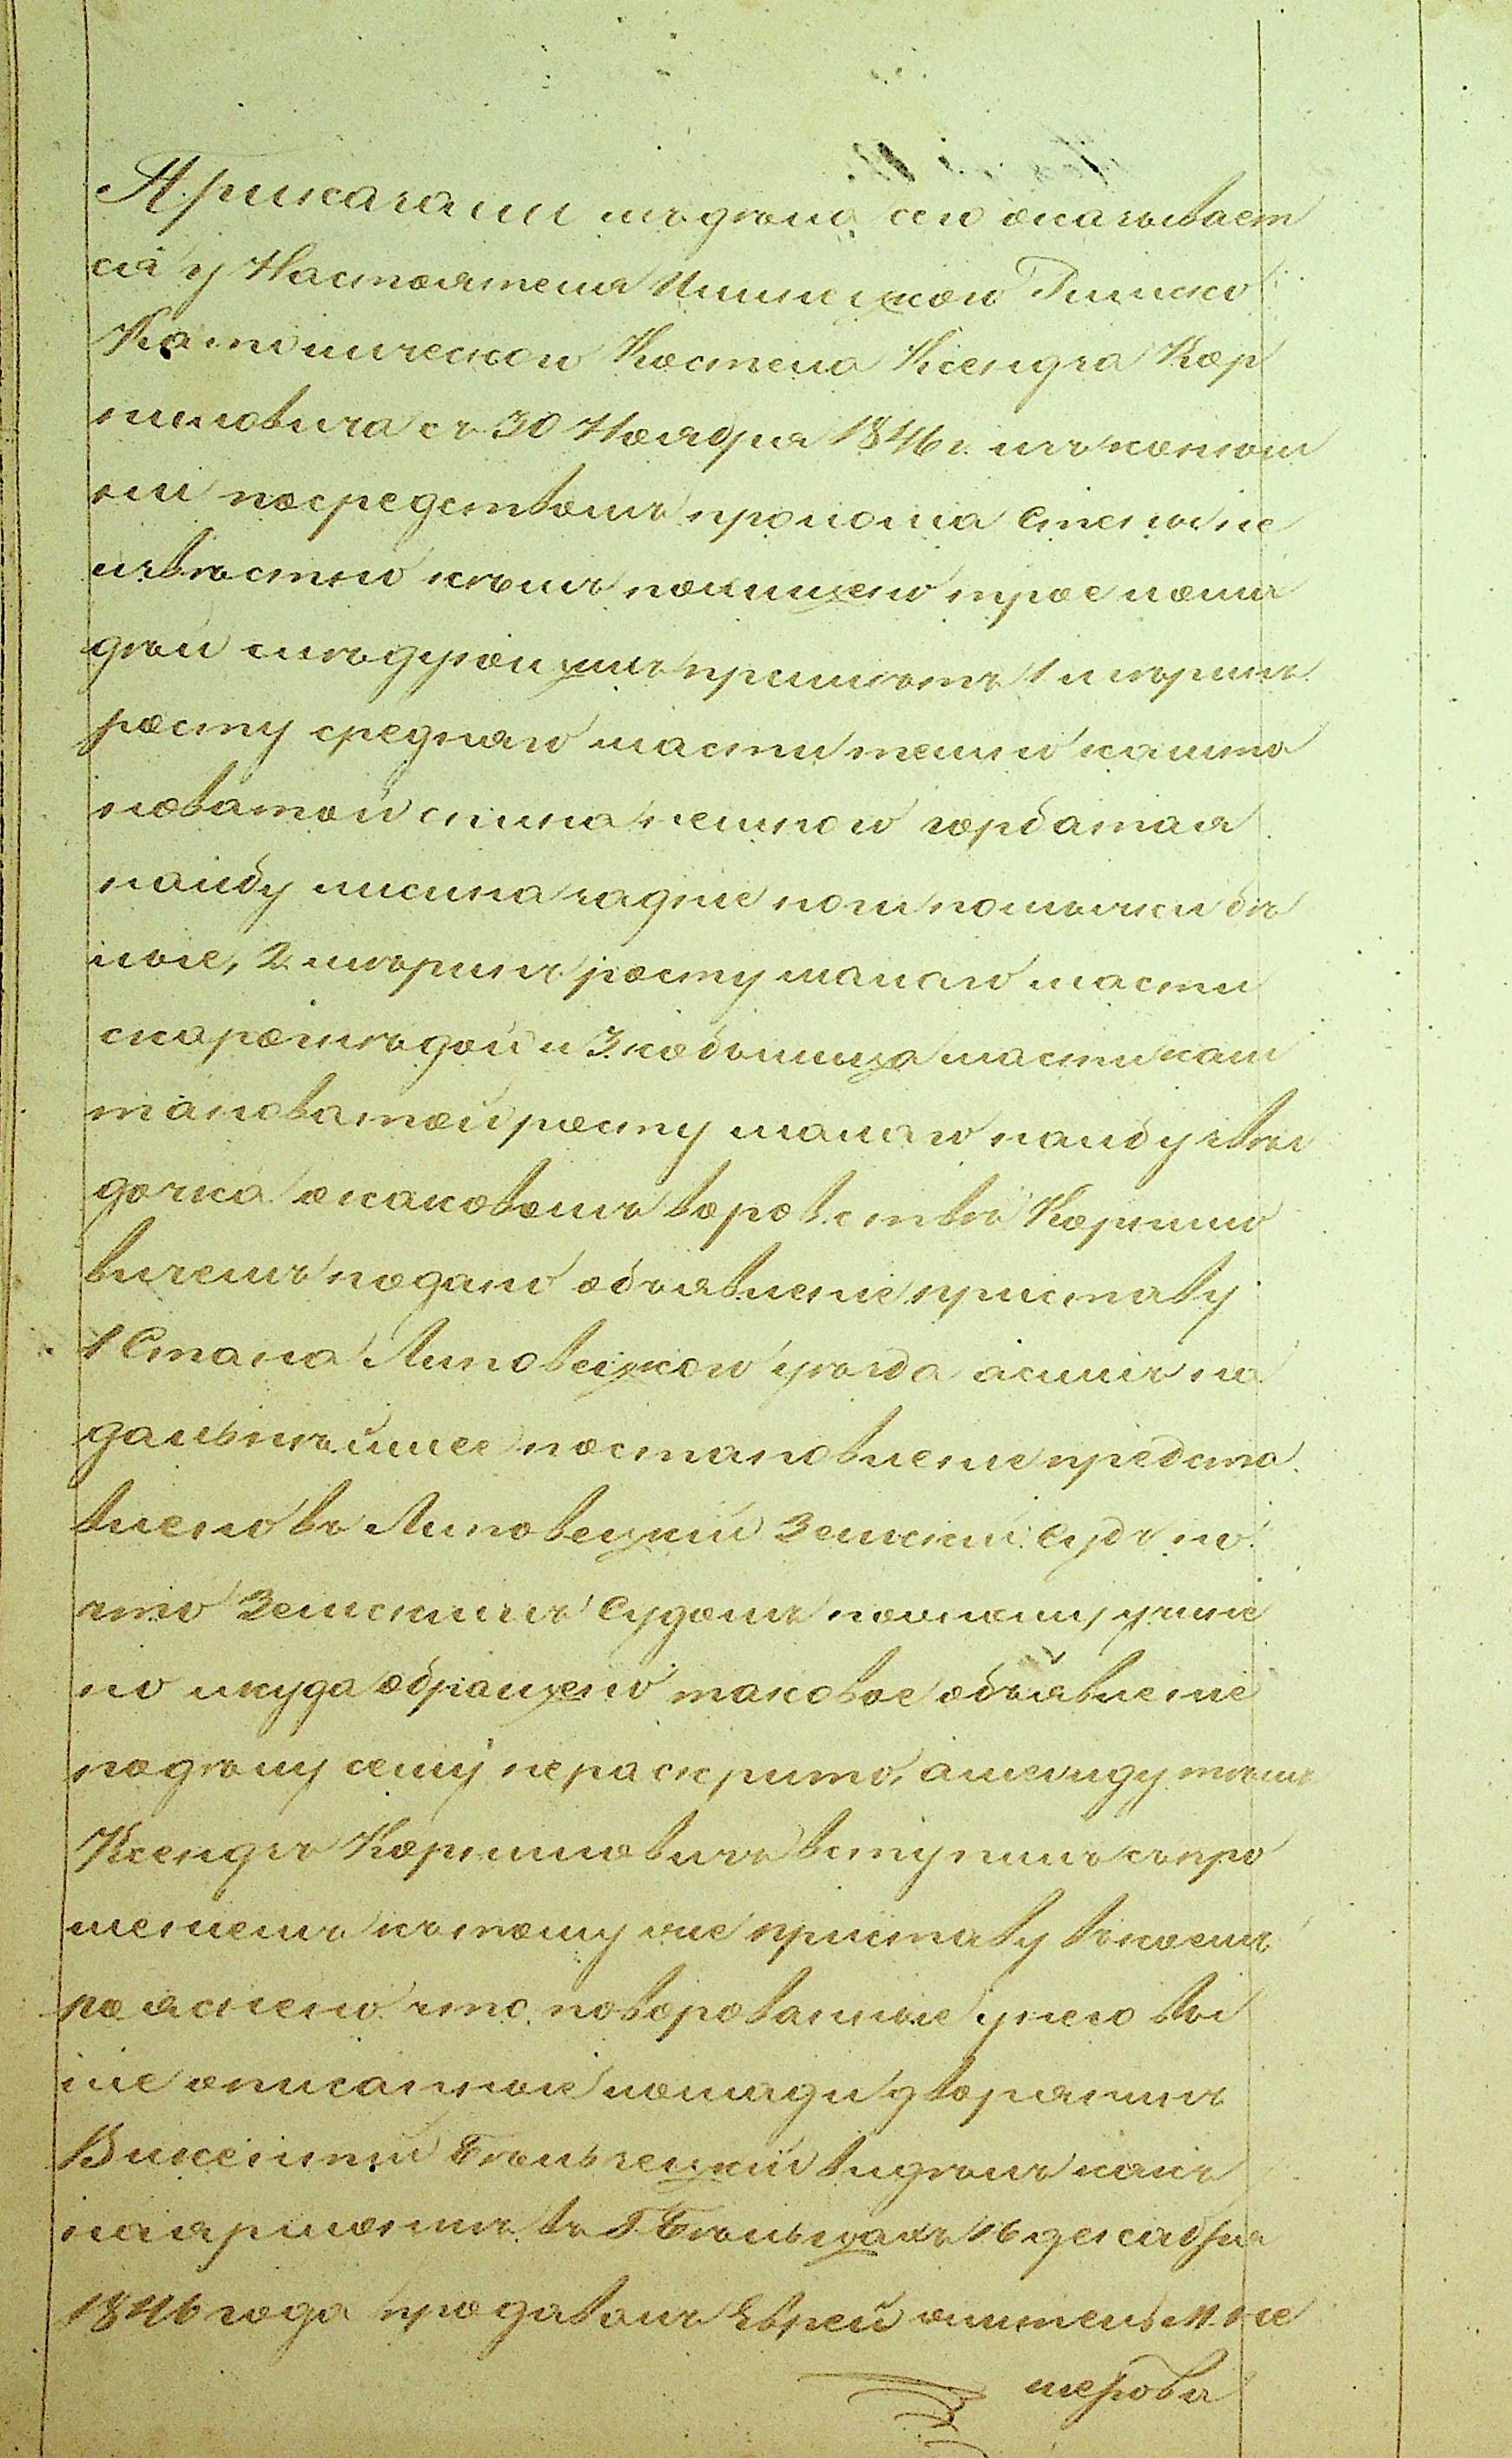 Приказали изъ дела сего оказывает
ся у Настоятеля Илинецкого Римско
Католического Костела Ксендза Кор
ниловича съ 30 Ноября 1846 г. изъ конюш
ни посредствомъ пролома стены не
известно кемъ похищено трое лоша
дей следующихъ приметъ 1 меринъ
росту среднаго масти темно кашта
новатой спина немного горбатая
на лбу лисина задние ноги по шетки бе
лые, 2 меринъ росту малаго масти
скарогнедой и 3 кобылица масти каш
тановатой росту малаго на лбу звез
дочка о каковомъ воровстве Корнило
вичемъ подано объявление приставу
1 Стана Липовецкого уезда а симъ на
дальнейшее постановление предста
влено въ Липовецкий Земский Судъ но
что Земскимъ Судомъ по оному учине
но и куда обращено таковое объявление
по делу сему нераскрито, а между темъ
Ксендзъ Корниловичъ вступилъ съ про
шениемъ къ тому же приставу въ коемъ
пояснено что поворованные у него вы
ше описанные лошади дворянинъ
Викентий Бельзецкий виделъ какъ
на ярмонке въ Г. Бельцахъ 16 декабря
1846 года продавалъ Еврей житель М. Же